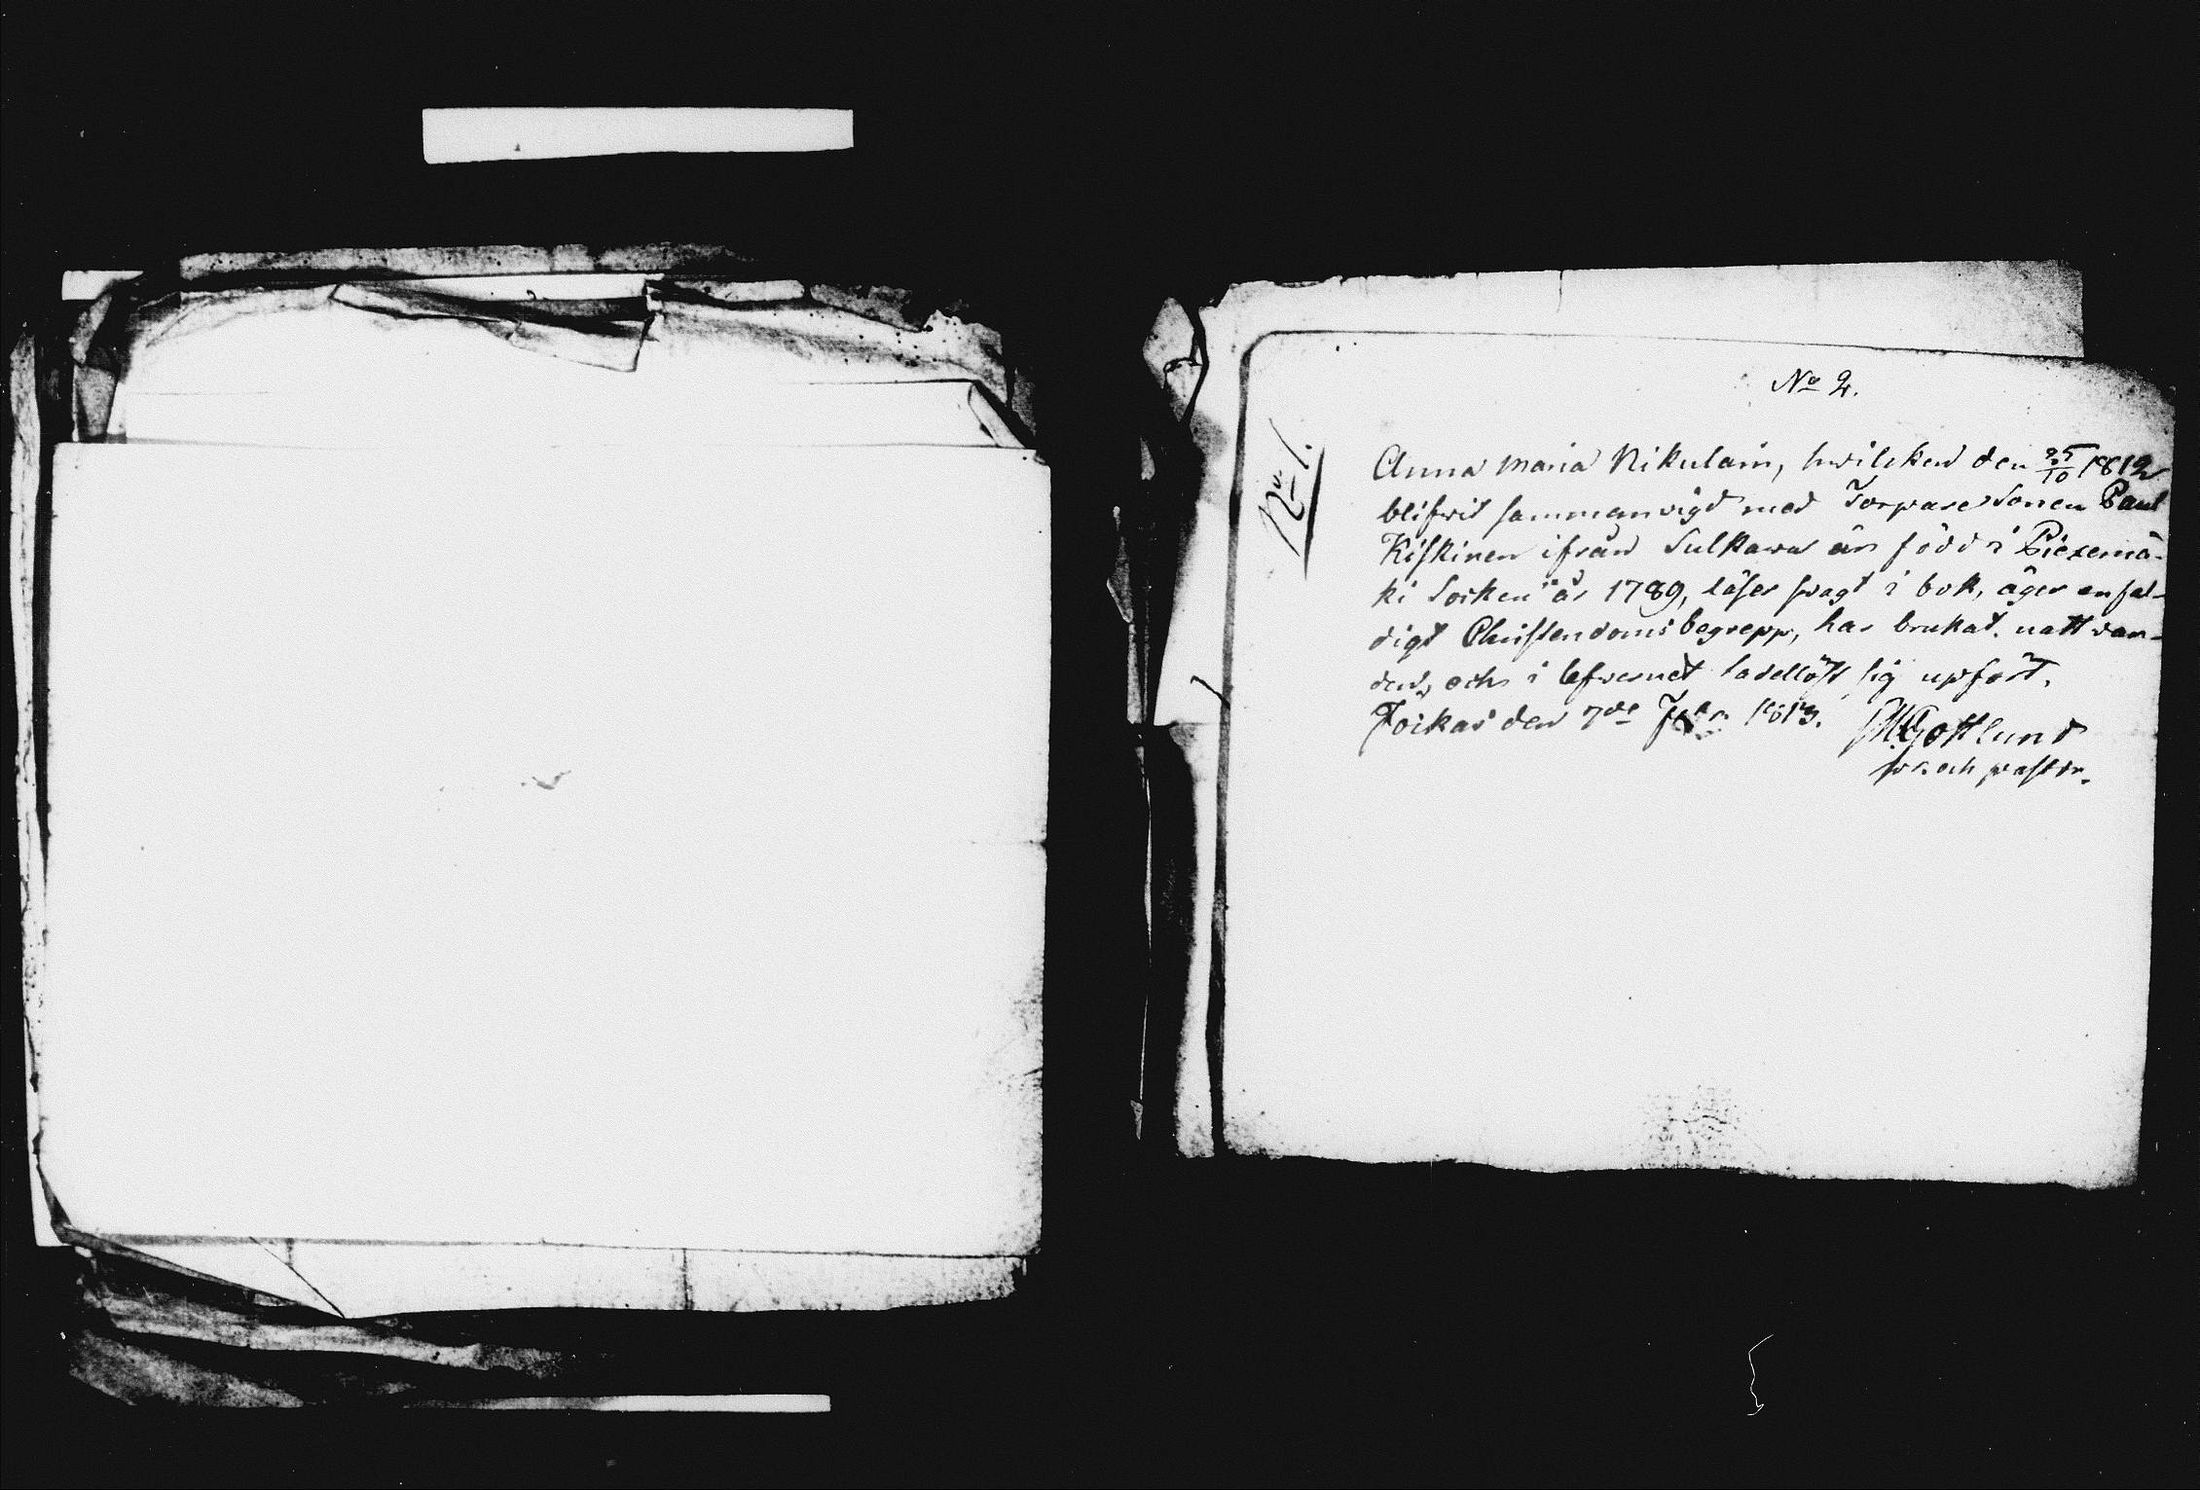 No 2.
No 1.
Anna Maria Nikulain, hwilcken den 25/10 1812
blifvit sammanvigd med Torpare Sonen Paul
Kiskinen ifrån Sulkava är född i Piexemä-
ki Socken år 1789, läser svagt i bok, äger enfal-
digt Christendoms begrepp, har brukat nattvar-
den, och i lefvernet ladellöst sig upfört.
Joickas den 7de 1813. Gottlund
pr. och pastor.